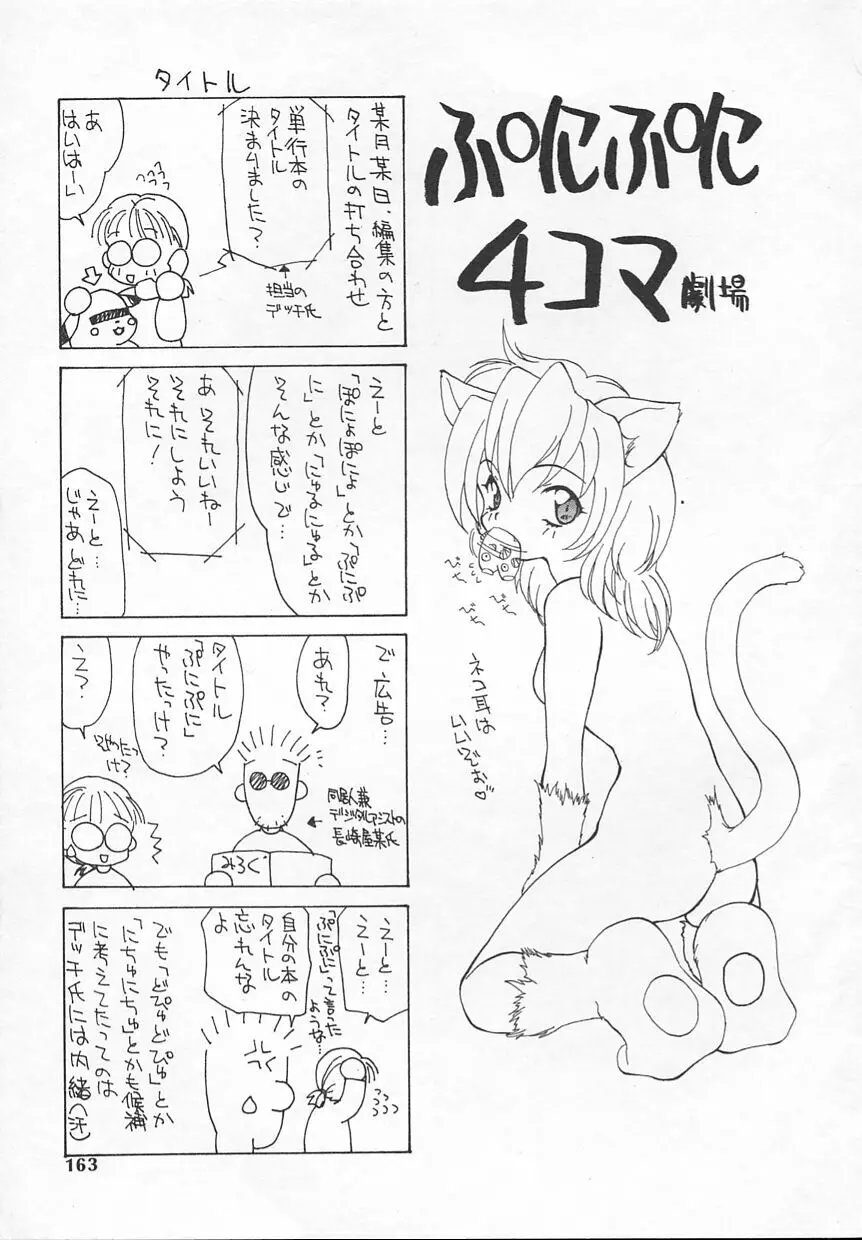 ぷにぷに
4コマ劇場
びち
びち
びち
ネコ耳は
いいでお♡
タイトル
某月某日、編集の方と
タイトルの打ち合わせ
単行本の
タイトル
決まりました?
担当の
デッチ氏
あ
はいはーい
えーと
「ぽにょぽにょ」とか「ぷにぷ
に」とか「にゅるにゅる」とか
そんな感じで…
あ それいいねー
それにしよう
それに!
えーと…
じゃあどれに…
で広告…
あれ?
タイトル
「ぷにぷに」
やったっけ?
同居人兼
デジタルアシストの
長崎屋某氏
みろく
え?
そやったっ
け?
えーと…
えーと…
「ぷにぷに」って言った
ような…
自分の本の
タイトル
忘れんな
よ
でも「どぴゅどぴゅ」とか
「にちゅにちゅ」とかも候補
に考えてたってのは
デッチ氏には内緒(汗)
163